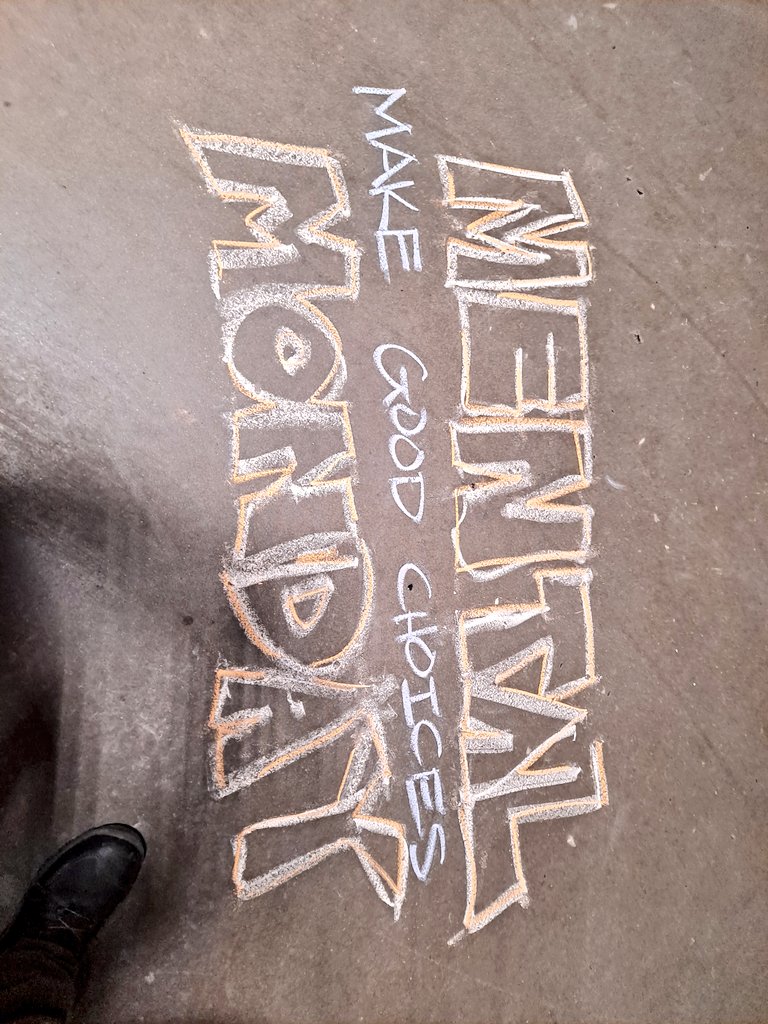 MENTAL
MAKE GOOD CHOICES
MONDAY